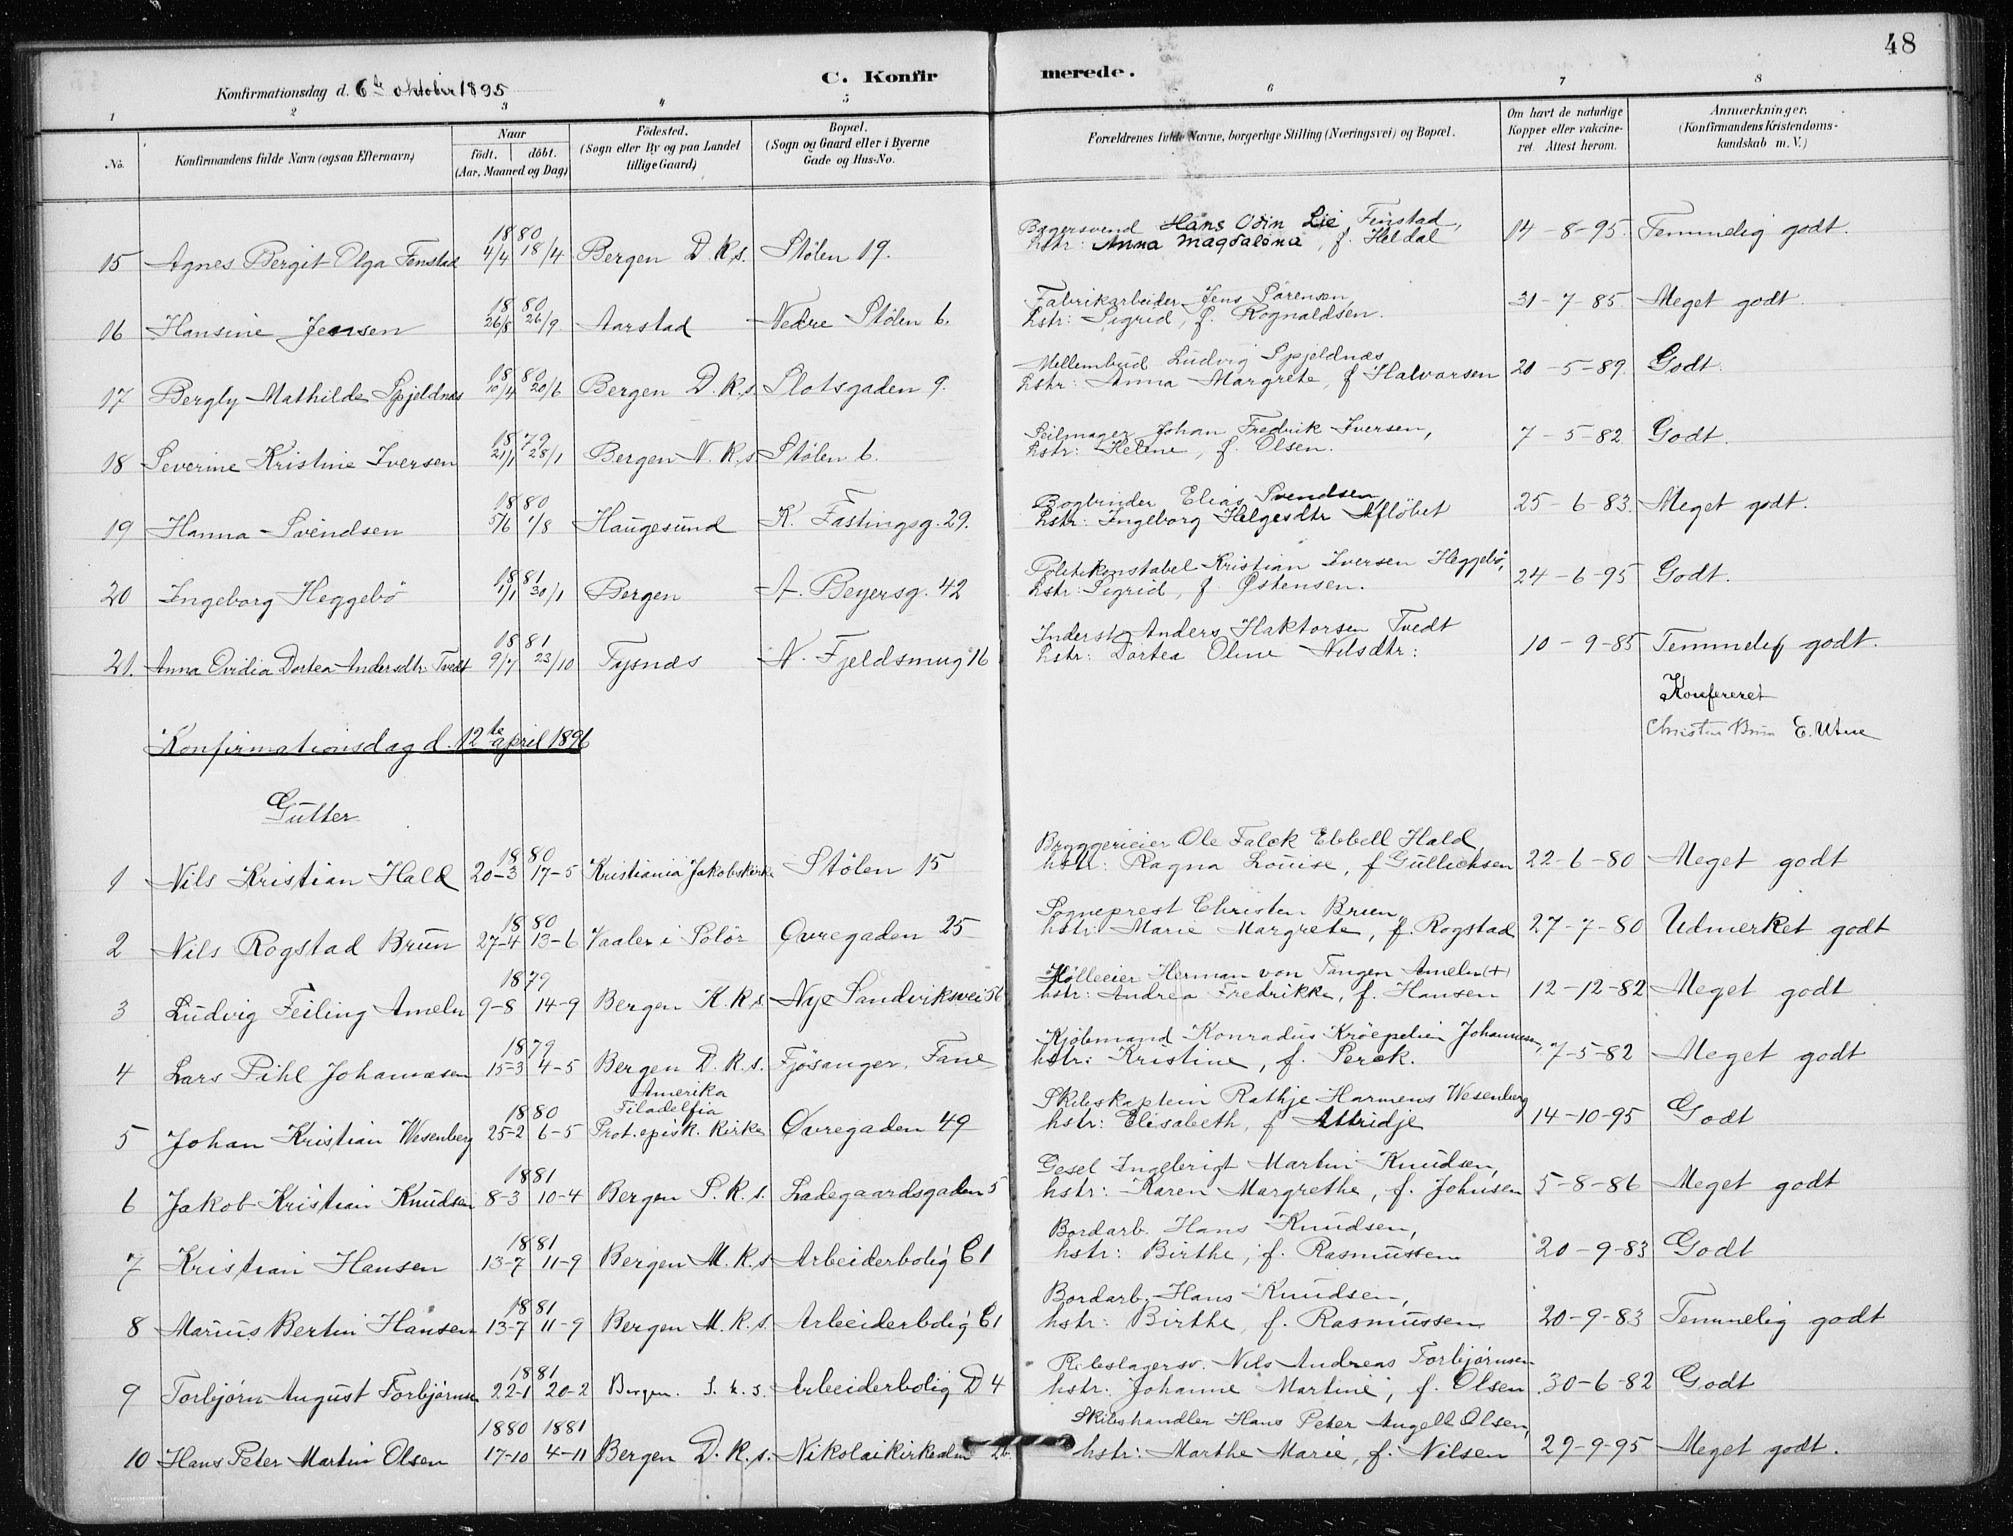 48
Konfirmationsdag d. 6te oktober 1895
C. Konfirmerede.
1 2 3 4 5 6 7 8
No. Konfirmandens fulde Navn (ogsaa Efternavn) Naar født. døbt. (Aar, Maaned og Dag) Fødested. (Sogn eller By og paa Landet tillige Gaard) Bopæl. (Sogn og Gaard eller i Byerne Gade og Hus-No. Forældrenes fulde Navne, borgerlige Stilling (Næringsvei) og Bopæl. Om havt de naturlige Kopper eller vakcineret. Attest herom. Anmærkninger. (Konfirmandens Kristendomskundskab m. V.)
1880 Bagersvend Hans Odin Lie Finstad,
15 Agnes Bergit Olga Fenstad 4/4 18/4 Bergen D.K.s. Stølen 19. hstr: Anna Magdalena, f. Heldal 14-8-95. Temmelig godt.
1880 Fabrikarbeider Jens Sørensen,
16 Hansine Jensen 26/8 26/9 Aarstad Nedre Stølen 6. hstr: Sigrid, f. Rognaldsen. 31-7-85. Meget godt.
1880 Mellembud Ludvig Spjeldnæs
17 Bergly Mathilde Spjeldnæs 10/4 20/6 Bergen D.K.s. Slotsgaden 9. hstr: Anna Margrete, f Halvorsen 20-5-89. Godt.
1879 Seilmager Johan Fredrik Iversen,
18 Severine Kristine Iversen 21/1 28/1 Bergen N.K.s Stølen 6. hstr: Helene, f. Olsen. 7-5-82 Godt.
1880 Bogbinder Elias Svendsen
19 Hanna Svendsen 5/6 1/8 Haugesund K. Fastingsg. 29. hstr: Ingeborg Helgesdtr Afløbet 25-6-83. Meget godt.
1881 Politikonstabel Kristian Iversen Heggebø,
20 Ingeborg Heggebø 1/1 30/1 Bergen A. Beyersg. 42 hstr: Sigrid, f. Østensen. 24-6-95 Godt.
1881 Inderst Anders Haktorsen Tvedt
21. Anna Ovidia Dortea Andersdtr. Tvedt 9/7 23/10 Tysnæs N. Fjeldsmug 16 hstr: Dortea Oline Nilsdtr: 10-9-85 Temmelig godt.
Konfereret
Christen Brun E. Utne
Konfirmationsdag d. 12te april 1896
Gutter
1880 Bryggerieier Ole Falck Ebbell Hald,
1 Nils Kristian Hald 20-3 17-5 Kristiania Jakobskirke Stølen 15 hstr: Ragna Louise, f Gullichsen 22-6-80 Meget godt
1880 Sogneprest Christen Brun,
2 Nils Rogstad Brun 27-4 13-6 Vaaler i Solør Øvregaden 25 hstr: Marie Margrete, f. Rogstad 27-7-80 Udmerket godt
1879 Mølleeier Herman von Tangen Ameln (+)
3 Ludvig Feiling Ameln 9-8 14-9 Bergen K.K.s. Nye Sandviksvei 56 hstr: Andrea Fredrikke, f. Hansen 12-12-82 Meget godt
1879 Kjøbmand Konradus Krøepelien Johannesen,
4 Lars Pihl Johannesen 15-3 4-5 Bergen D.K.s. Fjøsanger, Fane hstr: Kristine, f. Perck. 7-5-82 Meget godt
Amerika
1880 Filadelfia Skibskaptein Rathje Harmens Wesenberg
5 Johan Kristian Wesenberg 25-2 6-5 Prot. episk. kirke Øvregaden 49 hstr: Elisabeth, f Attridje 14-10-95 Godt
1881 Gesel Ingebrigt Martin Knudsen,
6 Jakob Kristian Knudsen 8-3 10-4 Bergen S.K.s. Ladegaardsgaden 5 hstr: Karen Margrethe, f. Johnsen 5-8-86 Meget godt
1881 Bordarb. Hans Knudsen,
7 Kristian Hansen 13-7 11-9 Bergen M.K.s Arbeiderbolig C1 hstr: Birthe, f. Rasmussen 20-9-83 Godt
1881 Bordarb. Hans Knudsen,
8 Marius Bertin Hansen 13-7 11-9 Bergen M.K.s. Arbeiderbolig C1 hstr: Birthe, f. Rasmussen 20-9-83 Temmelig godt
1881 Rebslagersv. Nils Andreas Torbjørnsen
9 Torbjørn August Torbjørnsen 22-1 20-2 Bergen. S.k.s. Arbeiderbolig D4 hstr: Johanne Martine, f. Olsen 30-6-82 Godt
1880 1881 Skibshandler Hans Peter Angell Olsen,
10 Hans Peter Martin Olsen 17-10 4-11 Bergen D.K.s. Nikolaikirkealm 26. hstr: Marthe Marie, f. Nilsen 27-9-95 Meget godt.